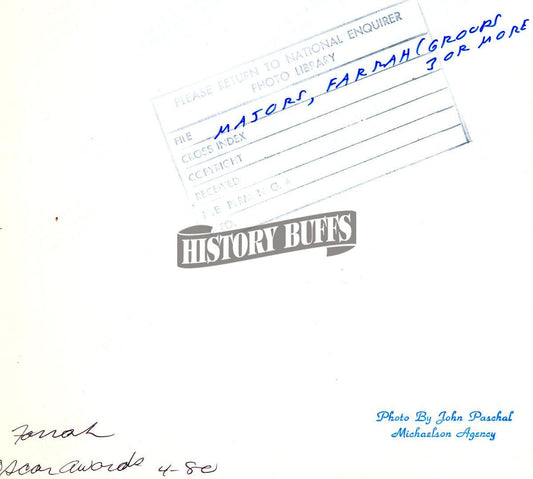 PLEASE RETURN TO NATIONAL ENQUIRER
PHOTO LIBRARY
FILE MAJORS, FARRAH (GROUPS
3 OR MORE
CROSS INDEX
COPYRIGHT
RECEIVED
HISTORY BUFFS
Photo By John Paschal
Michaelson Agency
Farrah
Oscar Awards 4-80